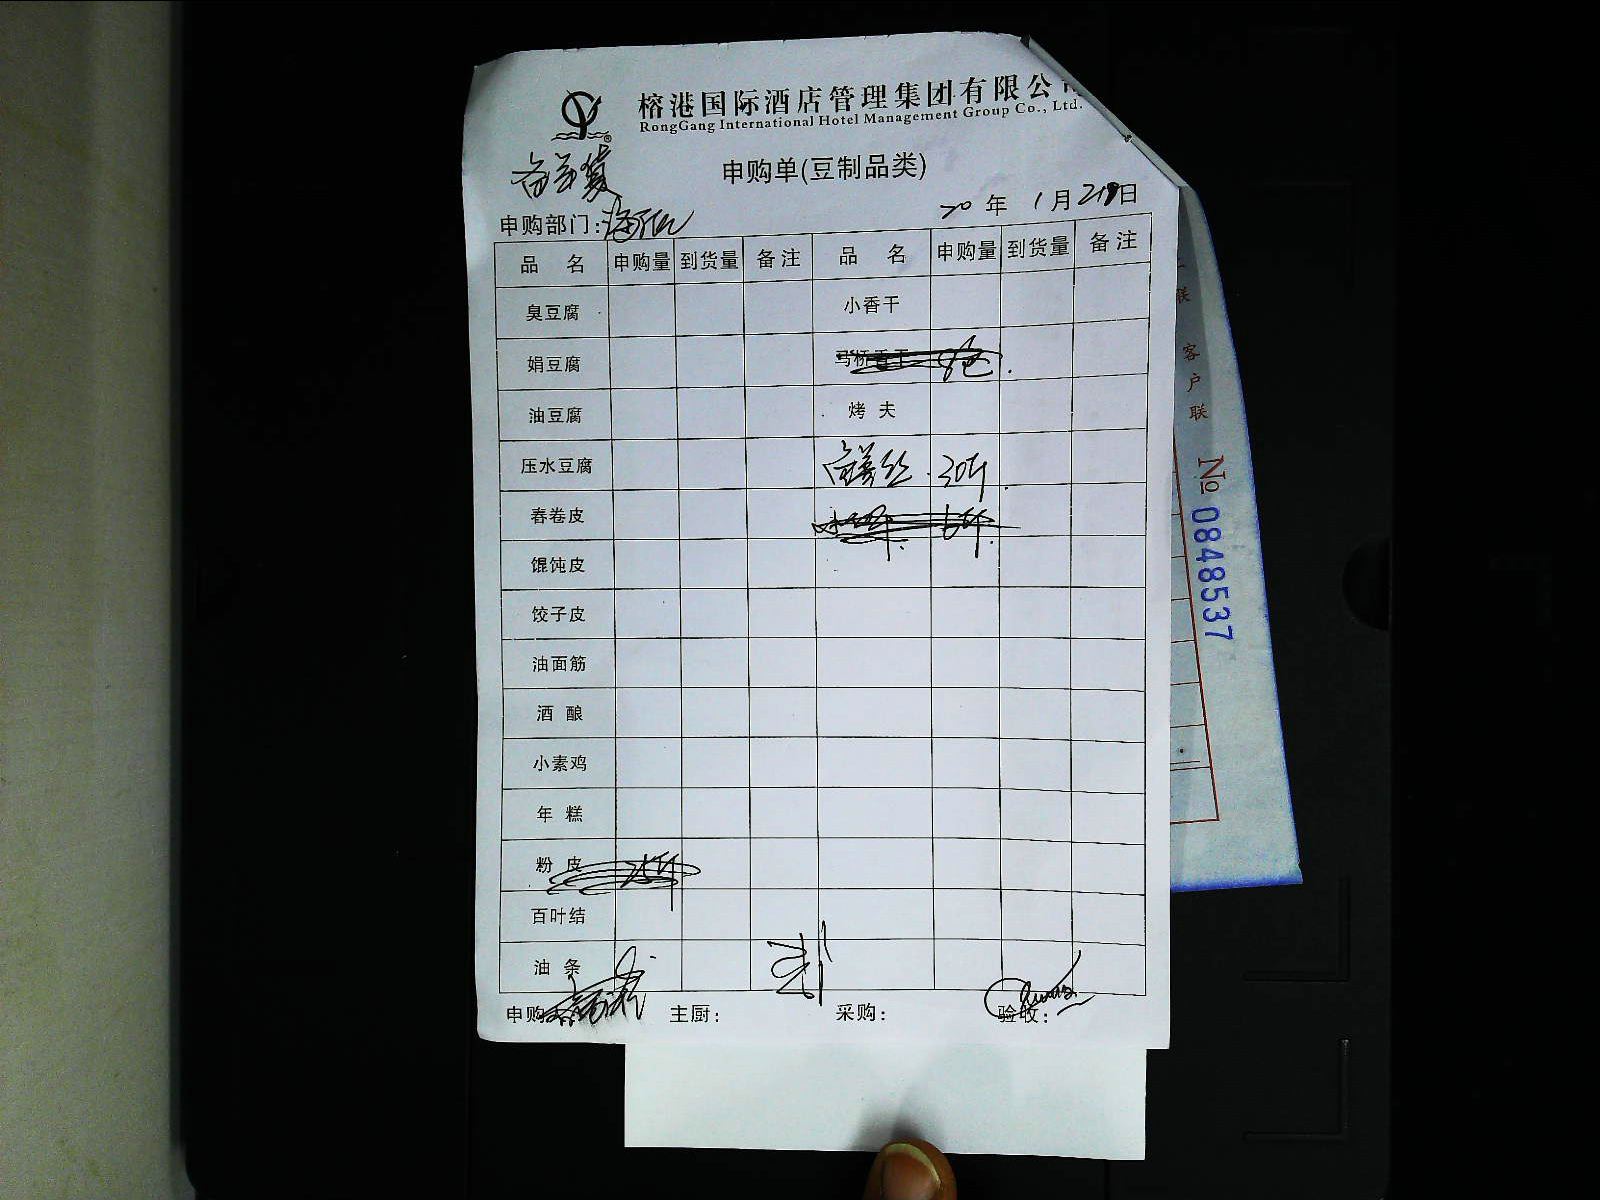 榕港国际酒店管理集团有限公司
RongGang International Hotel Management Group Co., Ltd.
申购单(豆制品类)
20 年 1 月 21 日
申购部门:
品 名 申购量 到货量 备注 品 名 申购量 到货量 备注
臭豆腐 小香干
娟豆腐 马桥香干
油豆腐 烤 夫
压水豆腐 30斤
春卷皮
馄饨皮
饺子皮
油面筋
酒 酿
小素鸡
年 糕
粉 皮 25斤
百叶结
油 条
申购 主厨: 采购: 验收:
联
客户联
№ 0848537